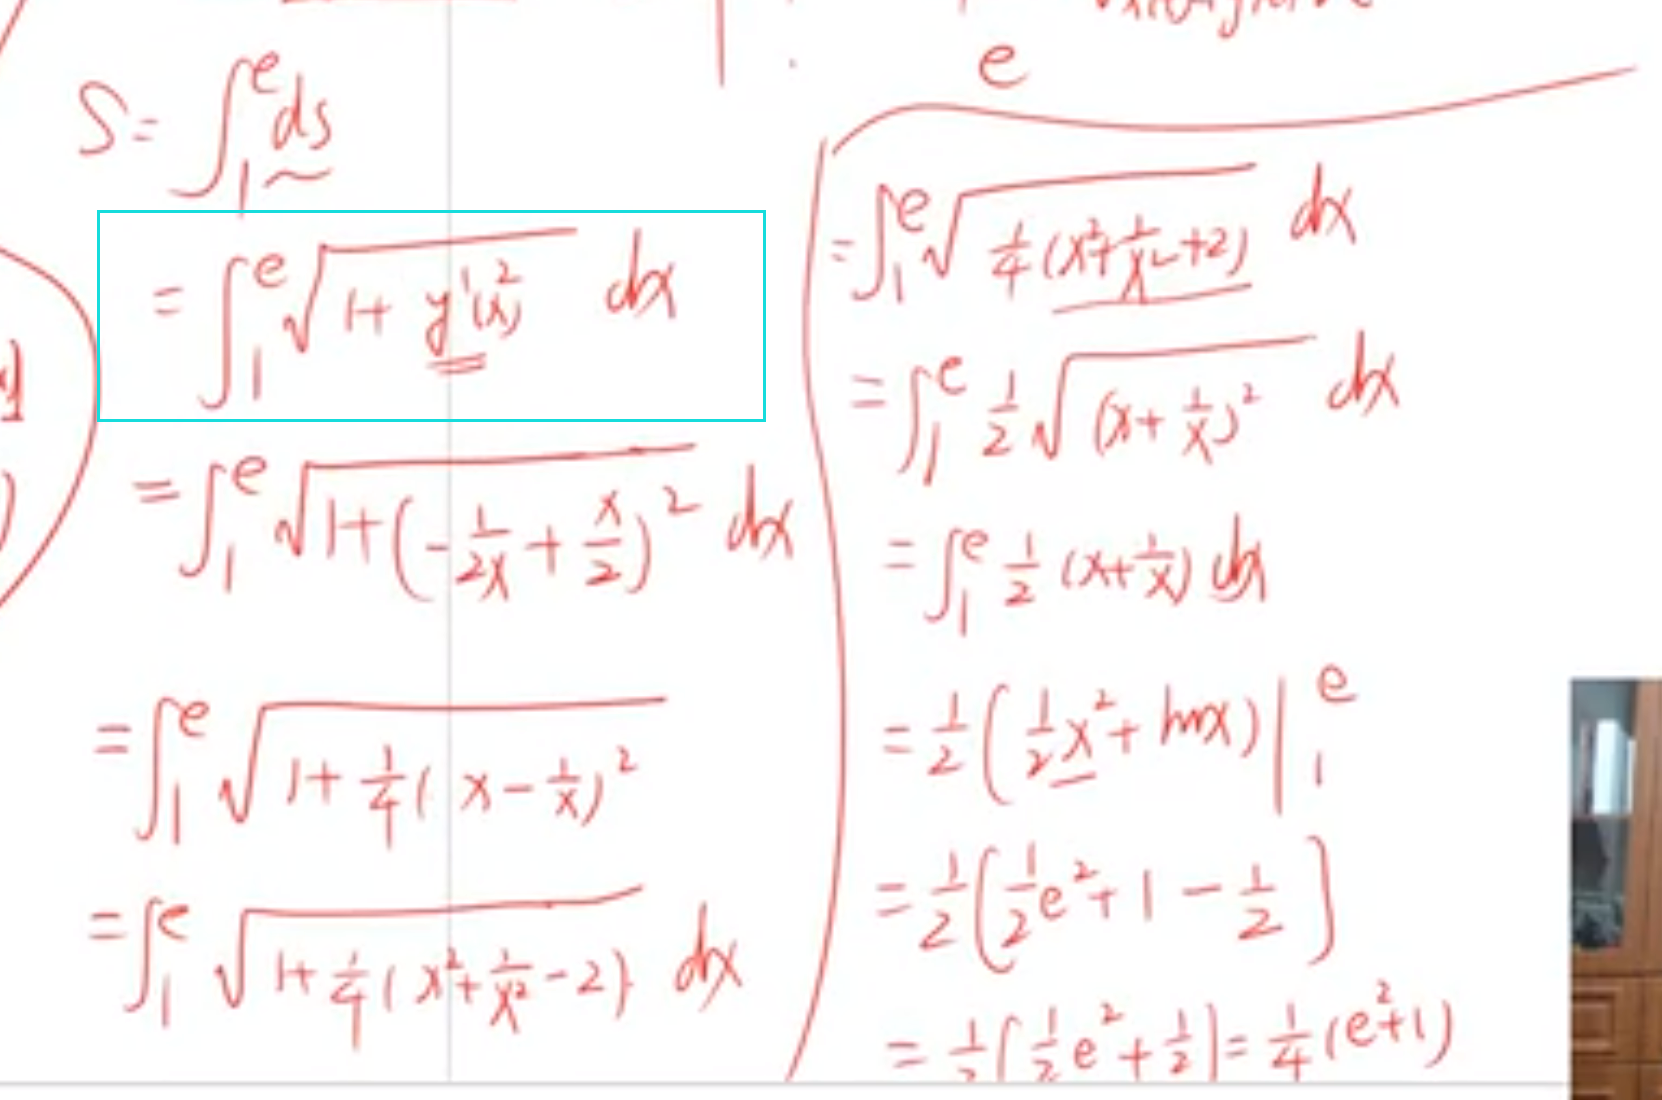 S = ∫₁ᵉ ds
= ∫₁ᵉ √(1 + y'(x)²) dx
= ∫₁ᵉ √(1 + (-1/(2x) + x/2)²) dx
= ∫₁ᵉ √(1 + 1/4(x - 1/x)²)
= ∫₁ᵉ √(1 + 1/4(x² + 1/x² - 2)) dx
e
= ∫₁ᵉ √(1/4(x² + 1/x² + 2)) dx
= ∫₁ᵉ 1/2 √((x + 1/x)²) dx
= ∫₁ᵉ 1/2 (x + 1/x) dx
= 1/2 (1/2 x² + lnx) |₁ᵉ
= 1/2 [1/2 e² + 1 - 1/2]
= 1/2 [1/2 e² + 1/2] = 1/4 (e² + 1)